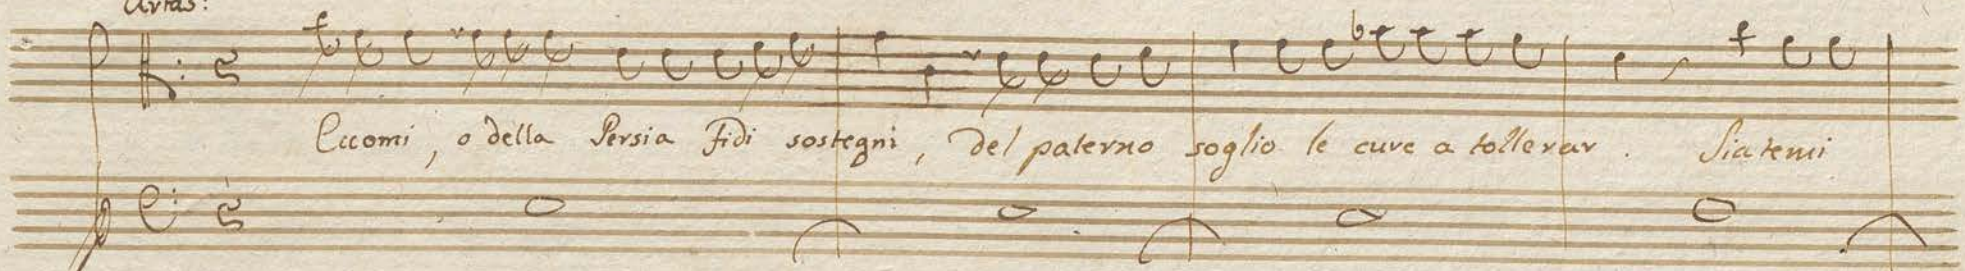 Artas:
Eccomi, o della Persia fidi sostegni, del paterno soglio le cure a tollerar. Siatemi